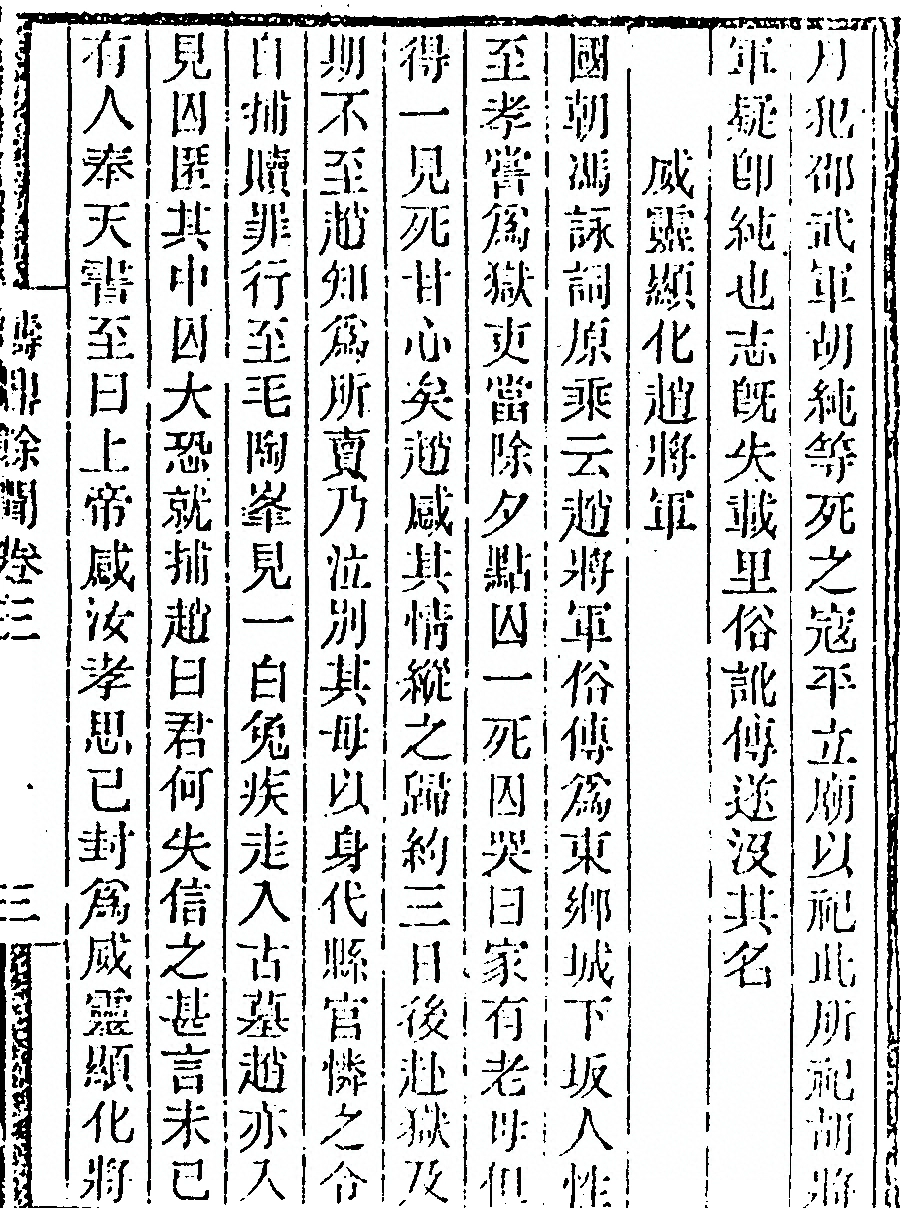 月犯邵武軍胡純等死之寇平立廟以祀此所祀胡將
軍疑卽純也志旣失載里俗訛傳遂沒其名
威靈顯化趙將軍
國朝馮詠詞原乘云趙將軍俗傳爲東鄉城下坂人性
至孝嘗爲獄吏當除夕點囚一死囚哭曰家有老母但
得一見死甘心矣趙感其情縱之歸約三日後赴獄及
期不至趙知爲所賣乃泣別其母以身代縣官憐之令
自捕贖罪行至毛陶峯見一白兔疾走入古墓趙亦入
見囚匿其中囚大恐就捕趙曰君何失信之甚言未已
有人奉天書至曰上帝感汝孝思已封爲威靈顯化將
餘聞卷三
三